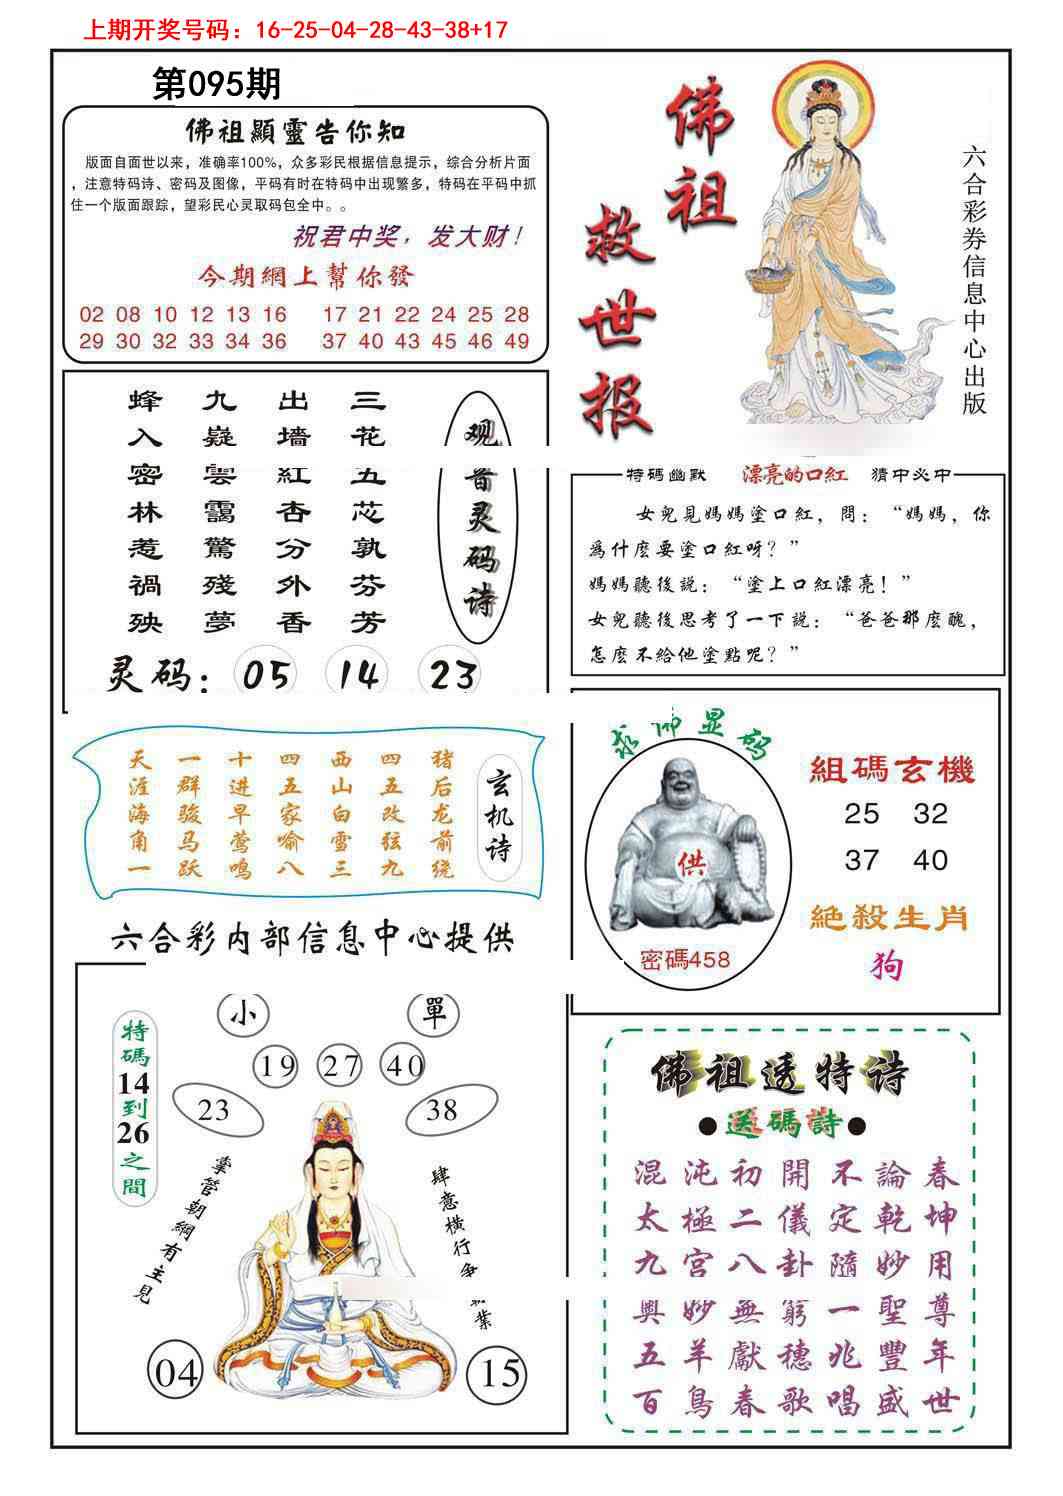 上期开奖号码：16-25-04-28-43-38+17
第095期
佛祖顯靈告你知
版面自面世以来，准确率100%，众多彩民根据信息提示，综合分析片面
，注意特码诗、密码及图像，平码有时在特码中出现繁多，特码在平码中抓
住一个版面跟踪，望彩民心灵取码包全中。。
祝君中奖，发大财！
今期網上幫你發
02 08 10 12 13 16 17 21 22 24 25 28
29 30 32 33 34 36 37 40 43 45 46 49
佛祖
救世报
六合彩券信息中心出版
观音灵码诗
三花五芯孰芬芳
出墙紅杏分外香
九嶷雲靄驚殘夢
蜂入密林惹禍殃
灵码：05 14 23
特碼幽默 漂亮的口紅 猜中必中
女兒見媽媽塗口紅，問：“媽媽，你
爲什麽要塗口紅呀？”
媽媽聽後説：“塗上口紅漂亮！”
女兒聽後思考了一下説：“爸爸那麽醜，
怎麽不給他塗點呢？”
玄机诗
猪后龙前绕
四五改弦九
西山白雪三
四五家喻八
十进早莺鸣
一群骏马跃
天涯海角一
求佛显码
供
密碼458
組碼玄機
25 32
37 40
絕殺生肖
狗
六合彩内部信息中心提供
特碼14到26之間
小 單
19 27 40
23 38
掌管朝綱有主見
肆意橫行爭霸業
04 15
佛祖透特诗
●送碼詩●
混沌初開不論春
太極二儀定乾坤
九宮八卦隨妙用
輿妙無窮一聖尊
五羊獻穗兆豐年
百鳥春歌唱盛世